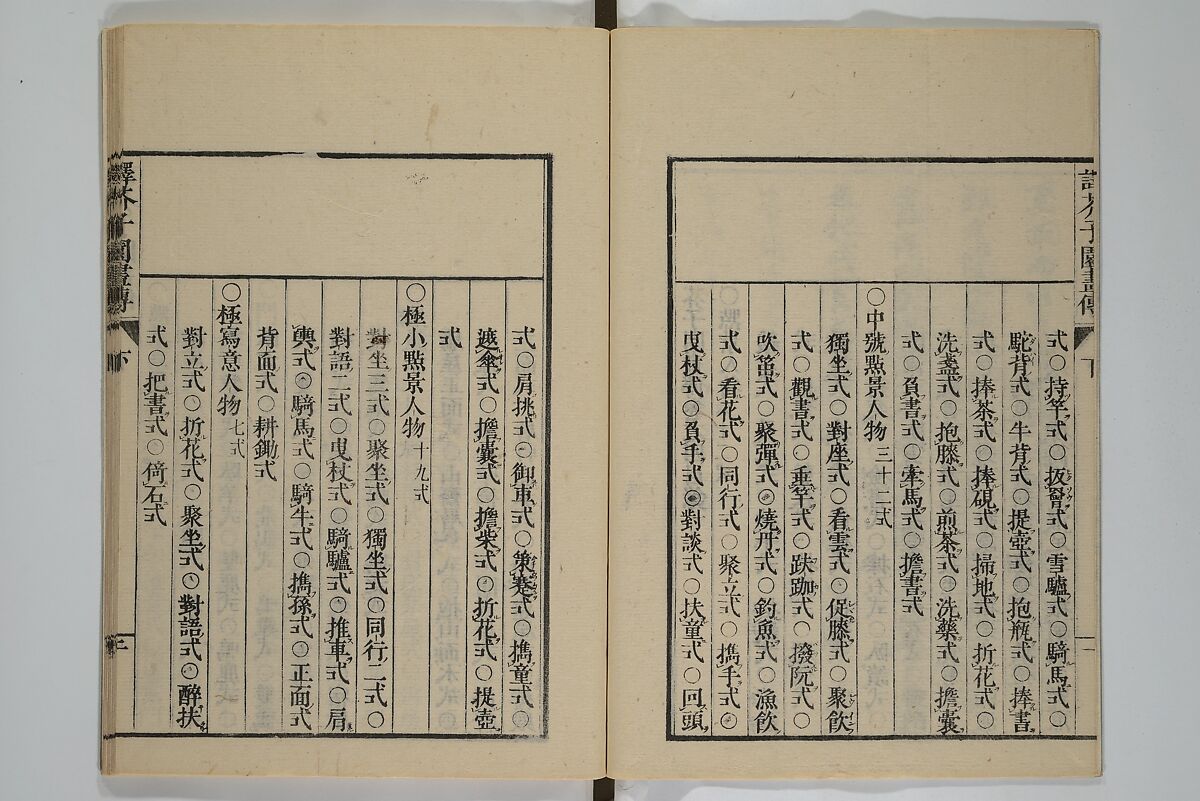 譯芥子園畫傳 下
式○持竿式○扳臂式○雪驢式○騎馬式○
駝背式○牛背式○提壺式○抱瓶式○捧書
式○捧茶式○捧硯式○掃地式○折花式○
洗盞式○抱膝式○煎茶式○洗藥式○擔囊
式○負書式○牽馬式○擔書式
○中號點景人物三十二式
獨坐式○對座式○看雲式○促膝式○聚飲
式○觀書式○垂竿式○趺跏式○撥阮式○
吹笛式○聚彈式○燒丹式○釣魚式○漁飲
式○看花式○同行式○聚立式○擕手式○
曳杖式○負手式○對談式○扶童式○回頭
式○肩挑式○御車式○策蹇式○擕童式○
遮傘式○擔囊式○擔柴式○折花式○提壺
式
○極小點景人物十九式
對坐三式○聚坐式○獨坐式○同行二式○
對語二式○曳杖式○騎驢式○推車式○肩
輿式○騎馬式○騎牛式○擕孫式○正面式
背面式○耕鋤式
○極寫意人物七式
對立式○折花式○聚坐式○對語式○醉扶
式○把書式○倚石式
譯芥子園畫傳 下 三